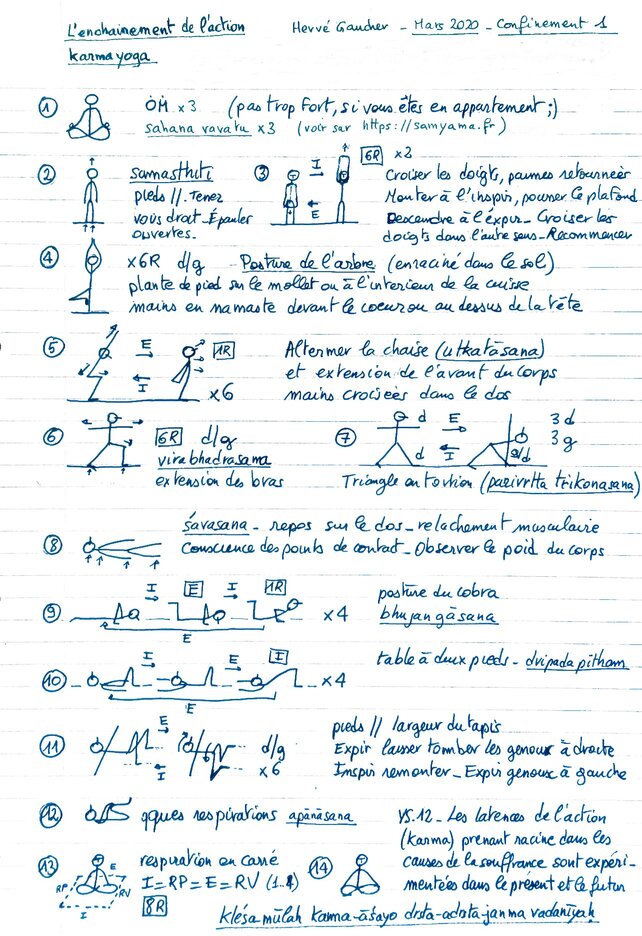 L'enchainement de l'action
Hervé Gaucher - Mars 2020 - Confinement 1
karma yoga
① OM x3 (pas trop fort, si vous êtes en appartement ;)
sahana vavatu x3 (voir sur https://samyama.fr)
② samasthiti
pieds // . Tenez
vous droit. Épaules
ouvertes.
③ I E 6R x2
Croiser les doigts, paumes retournées
Monter à l'inspir, pousser le plafond
Descendre à l'expir - Croiser les
doigts dans l'autre sens - Recommencer
④ x6R d/g Posture de l'arbre (enraciné dans le sol)
plante de pied sur le mollet ou à l'interieur de la cuisse
mains en namaste devant le coeur ou au dessus de la tête
⑤ E I 1R x6
Alterner la chaise (utkatāsana)
et extension de l'avant du corps
mains croisées dans le dos
⑥ 6R d/g
virabhadrasana
extension des bras
⑦ d d E I g/d 3d
3g
Triangle en torsion (parivrtta trikonasana)
⑧ śavasana - repos sur le dos - relachement musculaire
Conscience des points de contact - Observer le poid du corps
⑨ I E I 1R E x4
posture du cobra
bhujangāsana
⑩ I E I E x4
table à deux pieds - dvipada pitham
⑪ E I d/g
x6
pieds // largeur du tapis
Expir laisser tomber les genoux à droite
Inspir remonter - Expir genoux à gauche
⑫ qques respirations apānāsana
⑬ E RP RV I respiration en carré
I = RP = E = RV
8R
⑭
YS.12 - Les latences de l'action
(karma) prenant racine dans les
causes de la souffrance sont expéri-
mentées dans le présent et le futur
kleśa-mūlah karma-āśayo drsta-adrsta-janma vedanīyah